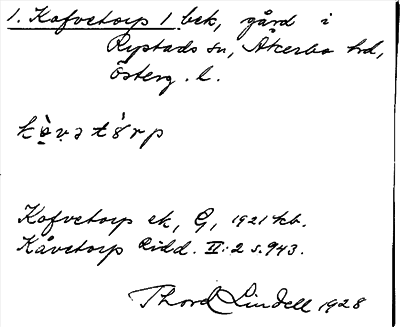 1. Kofvetorp 1 bek, gård i
Rystads sn, Åkerbo hd,
Österg. l.
kò̤vətórp
Kofvetorp ek, G, 1921 kb.
Kåvetorp Ridd. II:2 s. 943.
Thord Lindell 1928